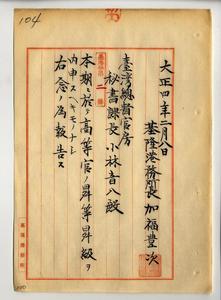 104
大正四年二月八日
基隆港務所長 加福豊次
臺灣總督官房
秘書課長 小林音八殿
本期ニ於テ高等官ノ昇等昇級ヲ
内申スヘキモノナシ
右念ノ為報告ス